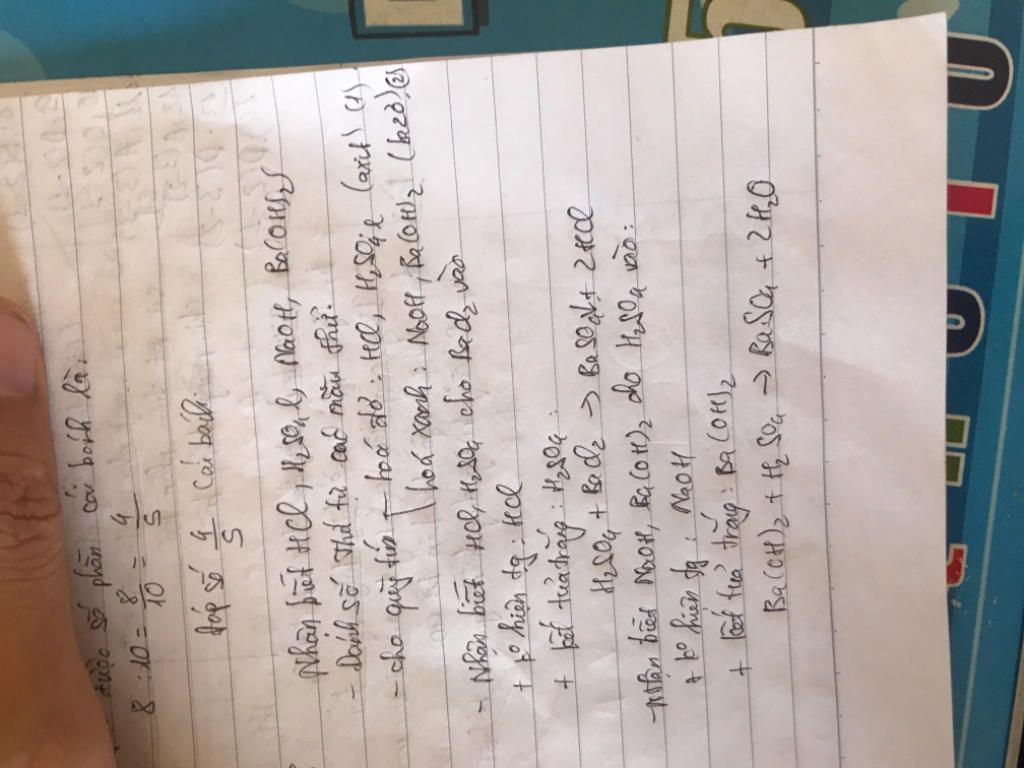 được số phần cái bánh là.
8 : 10 = 8/10 = 4/5
Đáp số 4/5 cái bánh.
Nhận biết HCl, H₂SO₄ l, NaOH, Ba(OH)₂
- Đánh số thứ tự các mẫu thử.
- cho quỳ tím hoá đỏ: HCl, H₂SO₄ l (axit) (1)
hoá xanh: NaOH, Ba(OH)₂ (bazơ) (2)
- Nhận biết HCl, H₂SO₄ cho BaCl₂ vào
+ ko hiện tg: HCl
+ kết tủa trắng: H₂SO₄
H₂SO₄ + BaCl₂ → BaSO₄↓ + 2HCl
- Nhận biết NaOH, Ba(OH)₂ cho H₂SO₄ vào:
+ ko hiện tg: NaOH
+ kết tủa trắng: Ba(OH)₂
Ba(OH)₂ + H₂SO₄ → BaSO₄ + 2H₂O